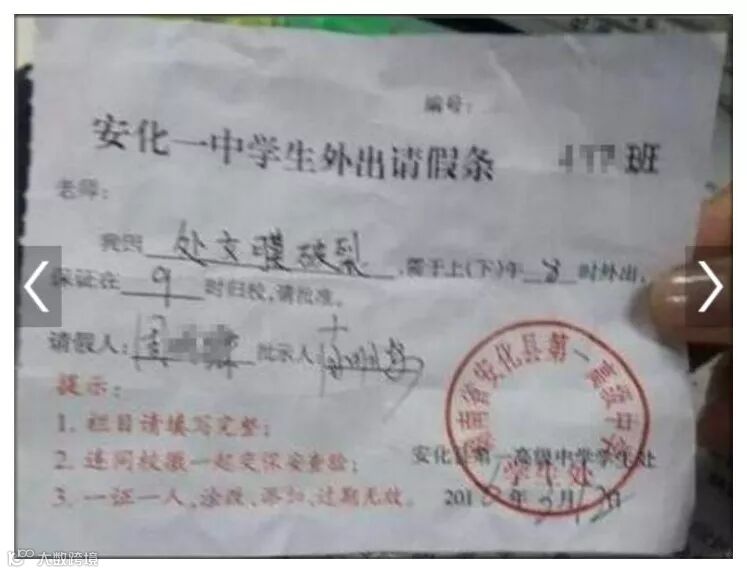 编号:
安化一中学生外出请假条 班
老师:
我因 处女膜破裂 ,需于上(下)午 8 时外出,
保证在 9 时归校,请批准。
请假人: 批示人:
提示:
1. 栏目请填写完整;
2. 连同校徽一起交保安查验;
3. 一证一人,涂改、添加、过期无效。
湖南省安化县第一高级中学
学生处
安化县第一高级中学学生处
201 年 月 日
大数跨境